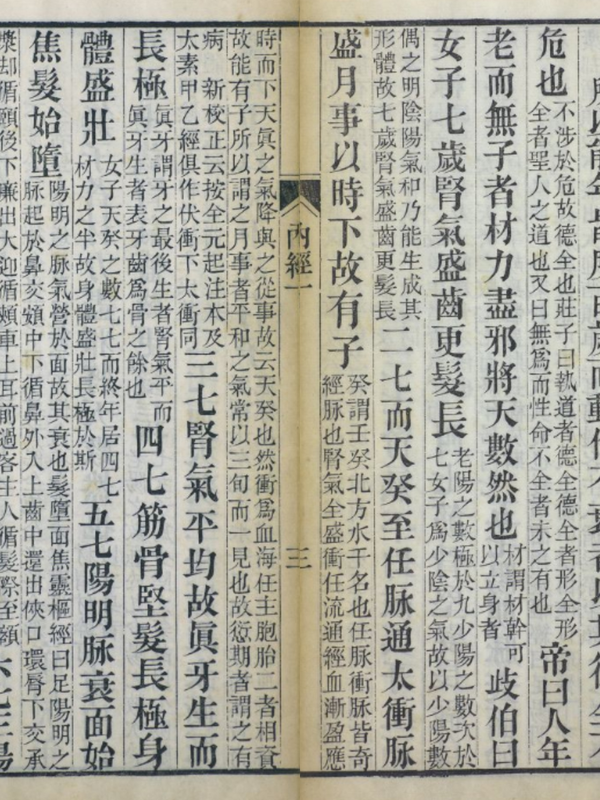 所以能年皆度百歲而動作不衰者以其德全不
危也
不涉於危故德全也莊子曰執道者德全德全者形全形
全者聖人之道也又曰無爲而性命不全者未之有也
帝曰人年
老而無子者材力盡邪將天數然也
材謂材幹可
以立身者
歧伯曰
女子七歲腎氣盛齒更髮長
老陽之數極於九少陽之數次於
七女子爲少陰之氣故以少陽數
偶之明陰陽氣和乃能生成其
形體故七歲腎氣盛齒更髮長
二七而天癸至任脉通太衝脉
盛月事以時下故有子
癸謂壬癸北方水干名也任脉衝脉皆奇
經脉也腎氣全盛衝任流通經血漸盈應
內經一
三
時而下天眞之氣降與之從事故云天癸也然衝爲血海任主胞胎二者相資
故能有子所以謂之月事者平和之氣常以三旬而一見也故愆期者謂之有
病 新校正云按全元起注本及
太素甲乙經俱作伏衝下太衝同
三七腎氣平均故眞牙生而
長極
眞牙謂牙之最後生者腎氣平而
眞牙生者表牙齒爲骨之餘也
四七筋骨堅髮長極身
體盛壯
女子天癸之數七七而終年居四七
材力之半故身體盛壯長極於斯
五七陽明脉衰面始
焦髮始墮
陽明之脉氣營於面故其衰也髮墮面焦靈樞經曰足陽明之
脉起於鼻交頞中下循鼻外入上齒中還出俠口環脣下交承
漿却循頤後下廉出大迎循頰車上耳前過客主人循髮際至額
六七三陽